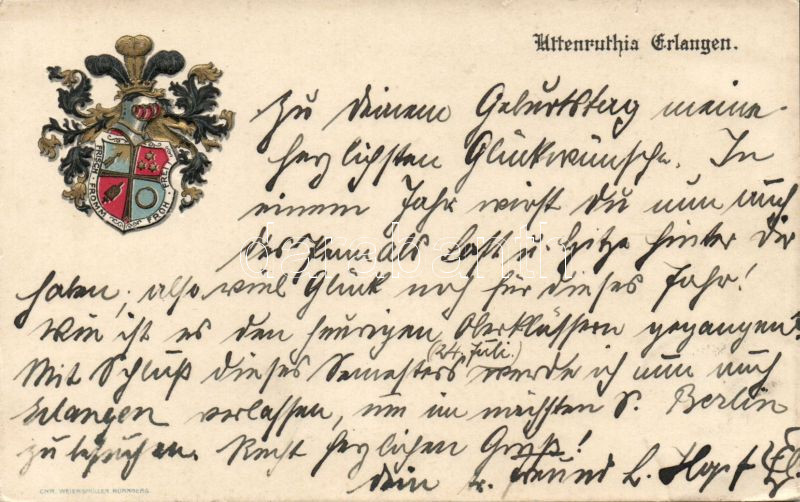 Uttenruthia Erlangen.
FRISCH FROMM FROH FREI
Zu deinem Geburtstag meine
herzlichsten Glückwünsche. In
einem Jahr wirst du nun auch
des Examens Last u. Hitze hinter dir
haben; also viel Glück noch für dieses Jahr!
Wie ist es den heurigen Oberklässern gegangen?
(24. Juli.)
Mit Schluß dieses Semesters werde ich nun auch
Erlangen verlassen, um im nächsten S. Berlin
zu besuchen. Recht herzlichen Gruß!
Dein Freund L.
CHR. WEIERSMÜLLER, NÜRNBERG
darabanth